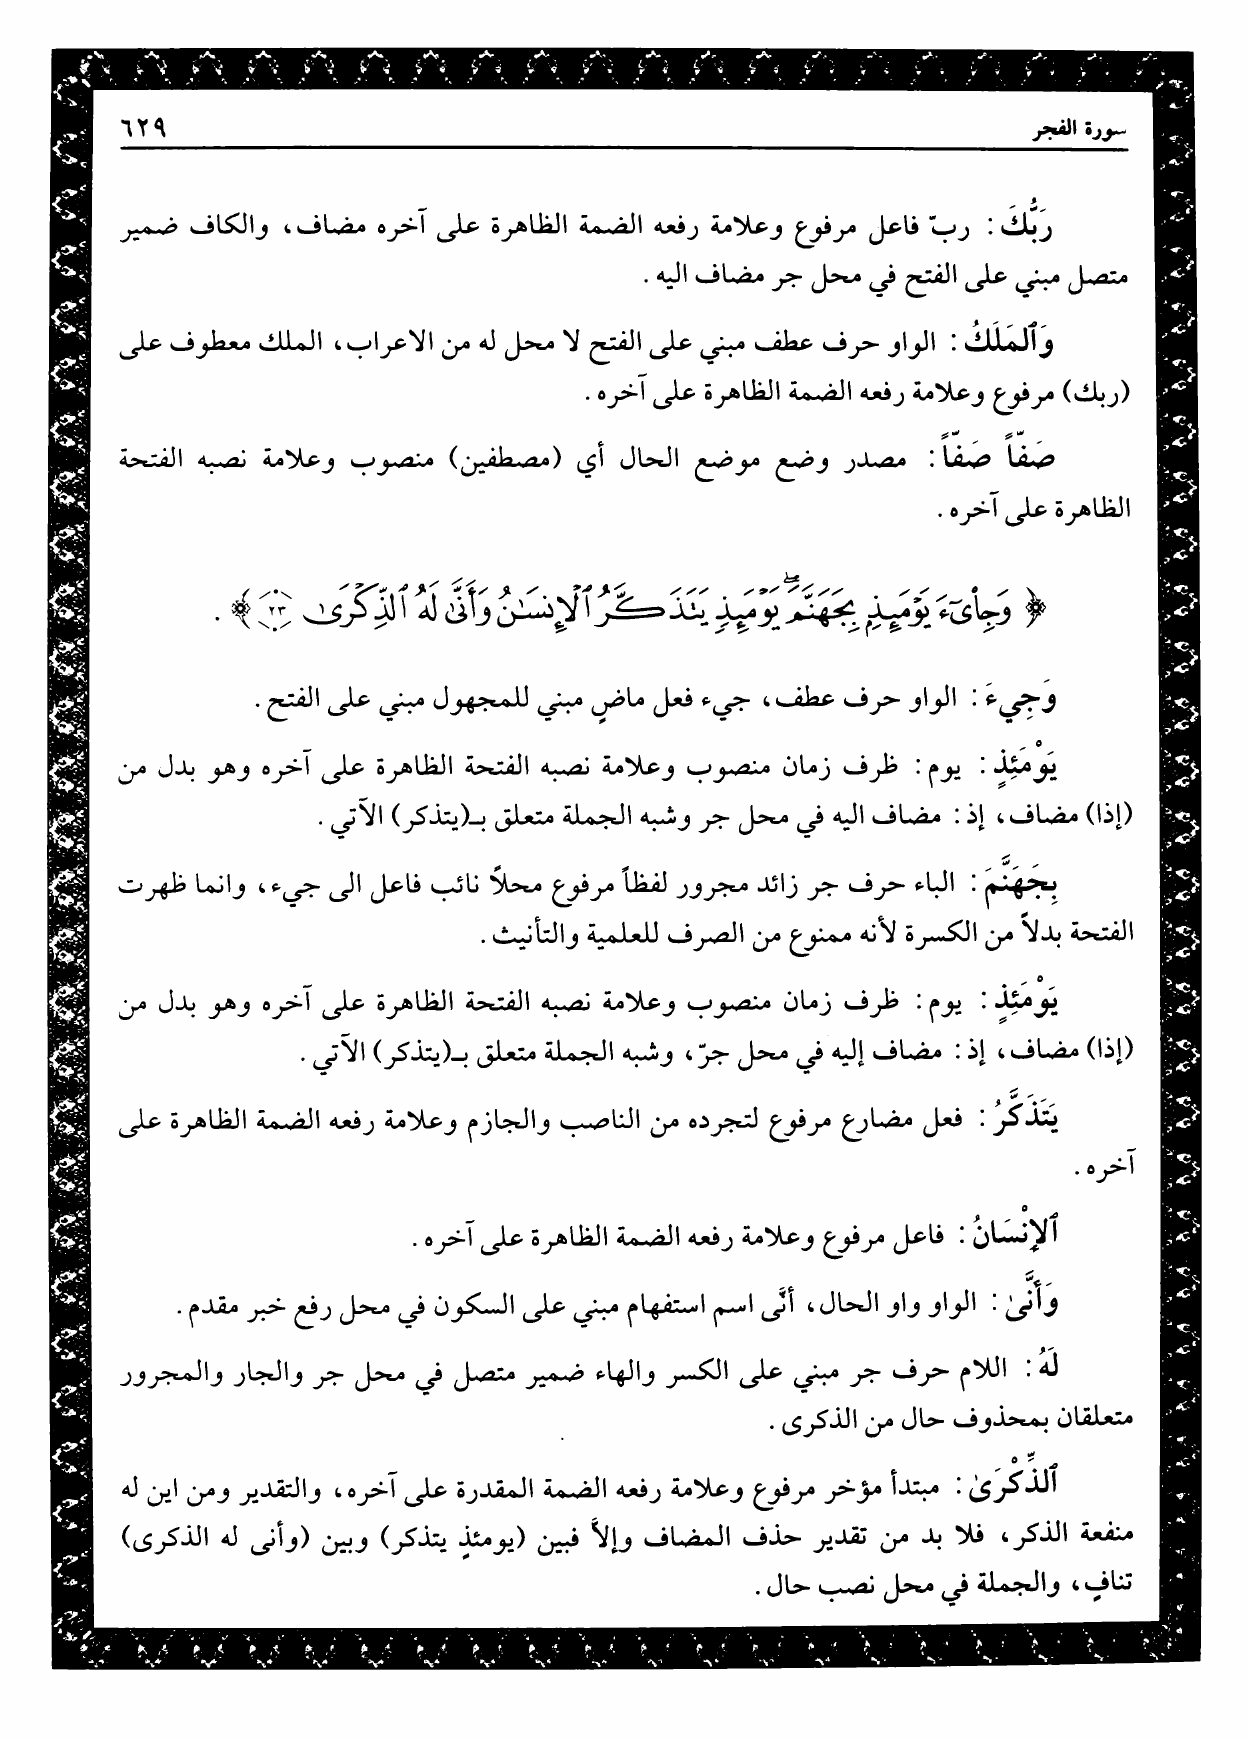 سورة الفجر ٦٢٩
رَبُّكَ : ربّ فاعل مرفوع وعلامة رفعه الضمة الظاهرة على آخره مضاف، والكاف ضمير
متصل مبني على الفتح في محل جر مضاف اليه .
وَٱلمَلَكُ : الواو حرف عطف مبني على الفتح لا محل له من الاعراب، الملك معطوف على
(ربك) مرفوع وعلامة رفعه الضمة الظاهرة على آخره .
صَفّاً صَفّاً : مصدر وضع موضع الحال أي (مصطفين) منصوب وعلامة نصبه الفتحة
الظاهرة على آخره .
﴿ وَجِا۟ىٓءَ يَوْمَئِذٍۭ بِجَهَنَّمَ ۚ يَوْمَئِذٍ يَتَذَكَّرُ ٱلْإِنسَـٰنُ وَأَنَّىٰ لَهُ ٱلذِّكْرَىٰ ٢٣ ﴾ .
وَجِيءَ : الواو حرف عطف، جيء فعل ماضٍ مبني للمجهول مبني على الفتح .
يَوْمَئِذٍ : يوم : ظرف زمان منصوب وعلامة نصبه الفتحة الظاهرة على آخره وهو بدل من
(إذا) مضاف، إذ : مضاف اليه في محل جر وشبه الجملة متعلق بـ(يتذكر) الآتي .
بِجَهَنَّمَ : الباء حرف جر زائد مجرور لفظاً مرفوع محلاً نائب فاعل الى جيء، وانما ظهرت
الفتحة بدلاً من الكسرة لأنه ممنوع من الصرف للعلمية والتأنيث .
يَوْمَئِذٍ : يوم : ظرف زمان منصوب وعلامة نصبه الفتحة الظاهرة على آخره وهو بدل من
(إذا) مضاف، إذ : مضاف إليه في محل جرّ، وشبه الجملة متعلق بـ(يتذكر) الآتي .
يَتَذَكَّرُ : فعل مضارع مرفوع لتجرده من الناصب والجازم وعلامة رفعه الضمة الظاهرة على
آخره .
ٱلإِنْسَانُ : فاعل مرفوع وعلامة رفعه الضمة الظاهرة على آخره .
وَأَنَّىٰ : الواو واو الحال، أنَّى اسم استفهام مبني على السكون في محل رفع خبر مقدم .
لَهُ : اللام حرف جر مبني على الكسر والهاء ضمير متصل في محل جر والجار والمجرور
متعلقان بمحذوف حال من الذكرى .
ٱلذِّكْرَىٰ : مبتدأ مؤخر مرفوع وعلامة رفعه الضمة المقدرة على آخره، والتقدير ومن اين له
منفعة الذكر، فلا بد من تقدير حذف المضاف وإلاَّ فبين (يومئذٍ يتذكر) وبين (وأنى له الذكرى)
تنافٍ، والجملة في محل نصب حال .